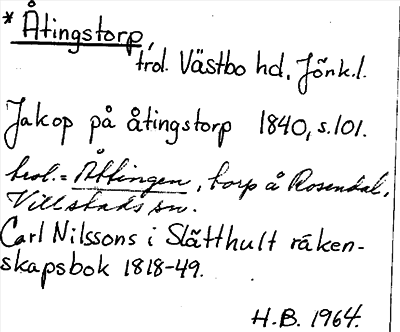 * Åtingstorp,
trol. Västbo hd, Jönk.l.
Jakop på åtingstorp 1840, s.101.
trol. = Åttingen, torp å Rosendal,
Villstads sn.
Carl Nilssons i Slätthult räken-
skapsbok 1818-49.
H.B. 1964.